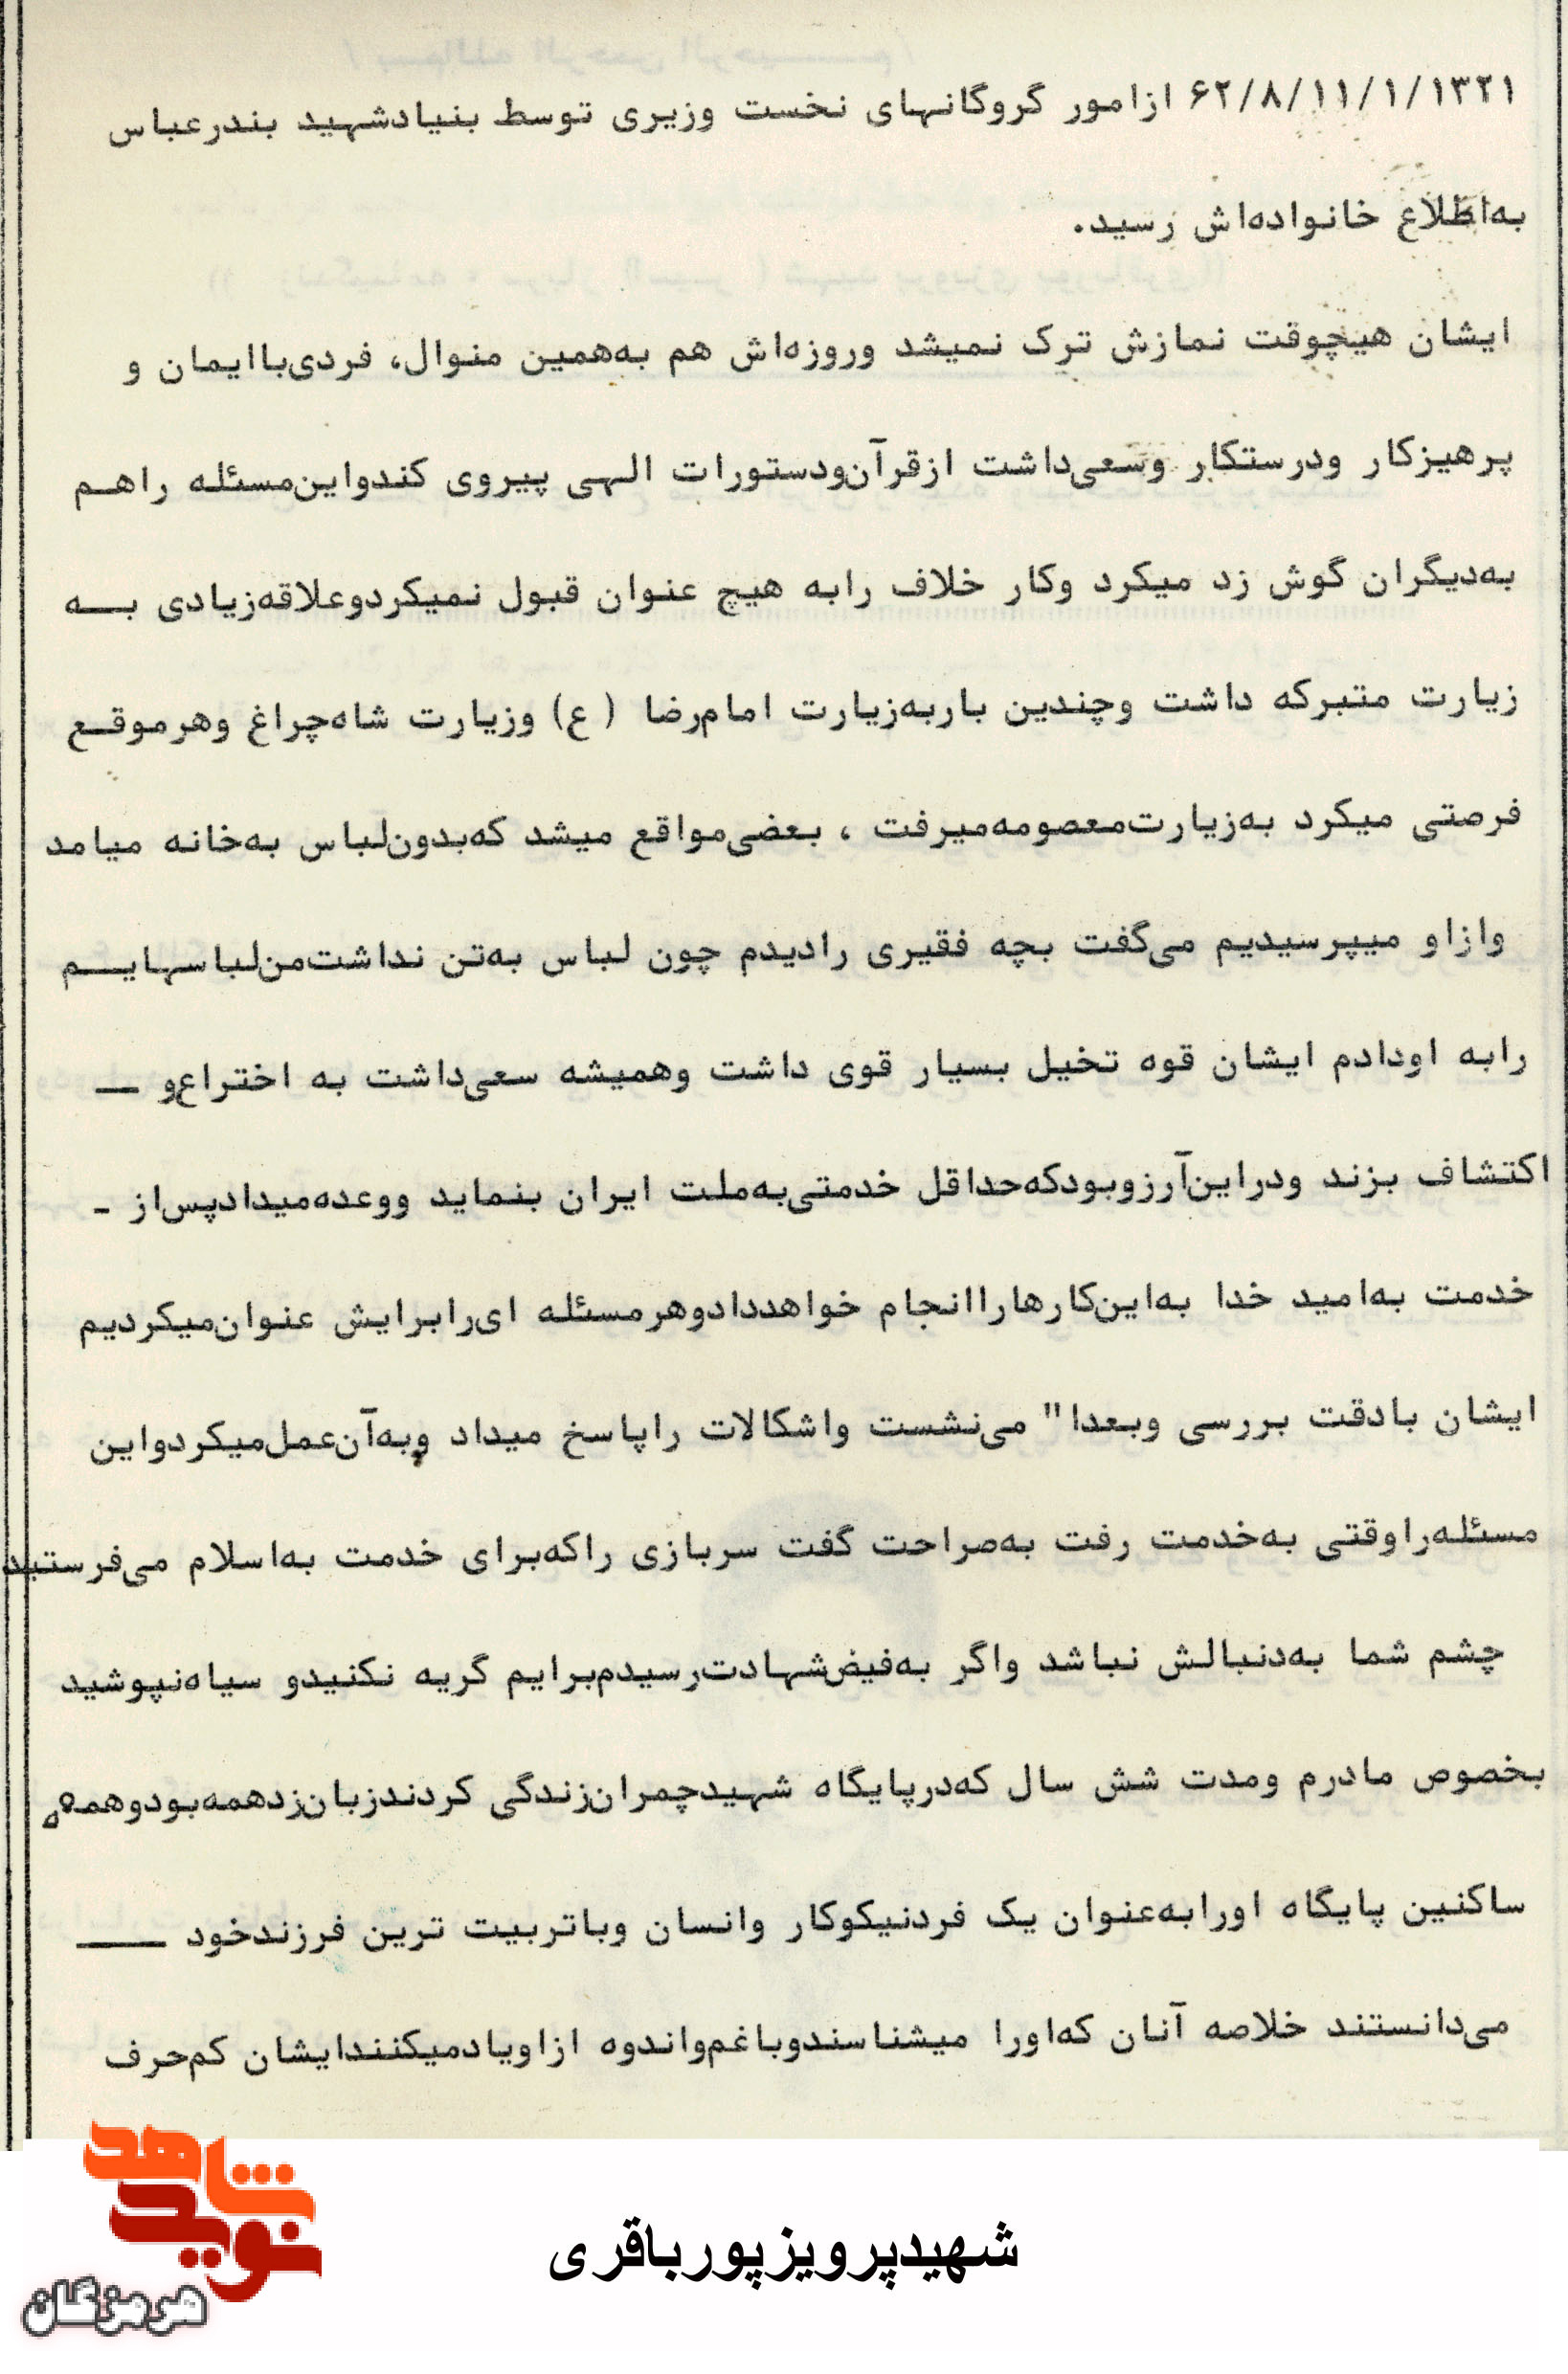 ۶۲/۸/۱۱/۱/۱۳۲۱ ازامور گروگانهای نخست وزیری توسط بنیادشهید بندرعباس
به‌اطلاع خانواده‌اش رسید.
ایشان هیچوقت نمازش ترک نمیشد وروزه‌اش هم به‌همین منوال، فردی‌باایمان و
پرهیزکار ودرستکار وسعی‌داشت ازقرآن‌ودستورات الهی پیروی کندواین‌مسئله راهم
به‌دیگران گوش زد میکرد وکار خلاف رابه هیچ عنوان قبول نمیکردوعلاقه‌زیادی بـه
زیارت متبرکه داشت وچندین باربه‌زیارت امام‌رضا (ع) وزیارت شاه‌چراغ وهرموقع
فرصتی میکرد به‌زیارت‌معصومه‌میرفت ، بعضی‌مواقع میشد که‌بدون‌لباس به‌خانه میامد
وازاو میپرسیدیم می‌گفت بچه فقیری رادیدم چون لباس به‌تن نداشت‌من‌لباسهایـم
رابه اودادم ایشان قوه تخیل بسیار قوی داشت وهمیشه سعی‌داشت به اختراع‌و ـ
اکتشاف بزند ودراین‌آرزوبودکه‌حداقل خدمتی‌به‌ملت ایران بنماید ووعده‌میدادپس‌از -
خدمت به‌امید خدا به‌این‌کارهاراانجام خواهددادوهرمسئله ای‌رابرایش عنوان‌میکردیم
ایشان بادقت بررسی وبعدا" می‌نشست واشکالات راپاسخ میداد وبه‌آن‌عمل‌میکردواین
مسئله‌راوقتی به‌خدمت رفت به‌صراحت گفت سربازی راکه‌برای خدمت به‌اسلام می‌فرستید
چشم شما به‌دنبالش نباشد واگر به‌فیض‌شهادت‌رسیدم‌برایم گریه نکنیدو سیاه‌نپوشید
بخصوص مادرم ومدت شش سال که‌درپایگاه شهیدچمران‌زندگی کردندزبان‌زدهمه‌بودوهمه
ساکنین پایگاه اورابه‌عنوان یک فردنیکوکار وانسان وباتربیت ترین فرزندخود ــ
می‌دانستند خلاصه آنان که‌اورا میشناسندوباغم‌واندوه ازاویادمیکنندایشان کم‌حرف
شهیدپرویزپورباقری
نوید شاهد
هرمزگان